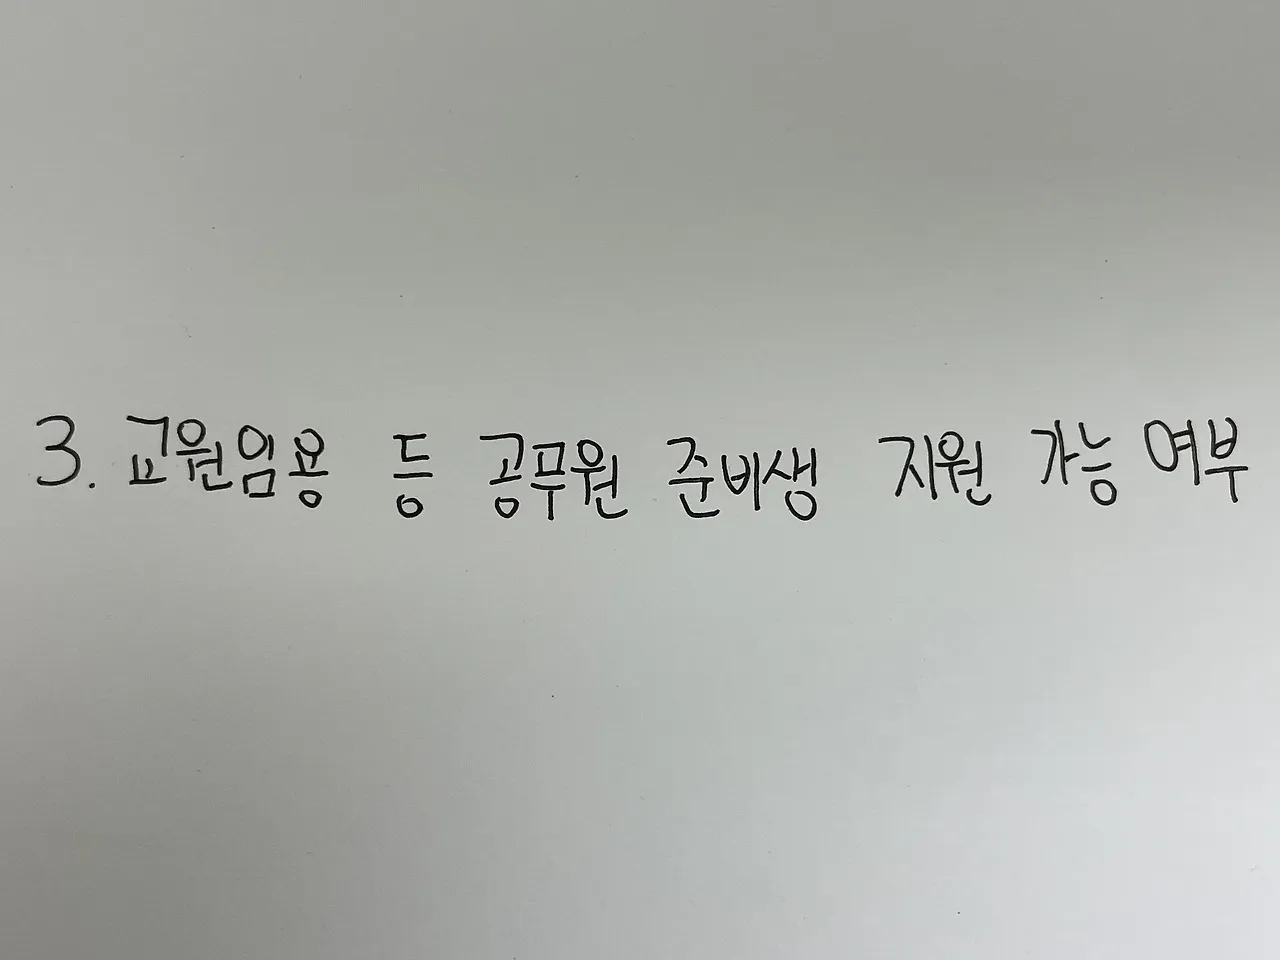 3. 교원임용 등 공무원 준비생 지원 가능 여부